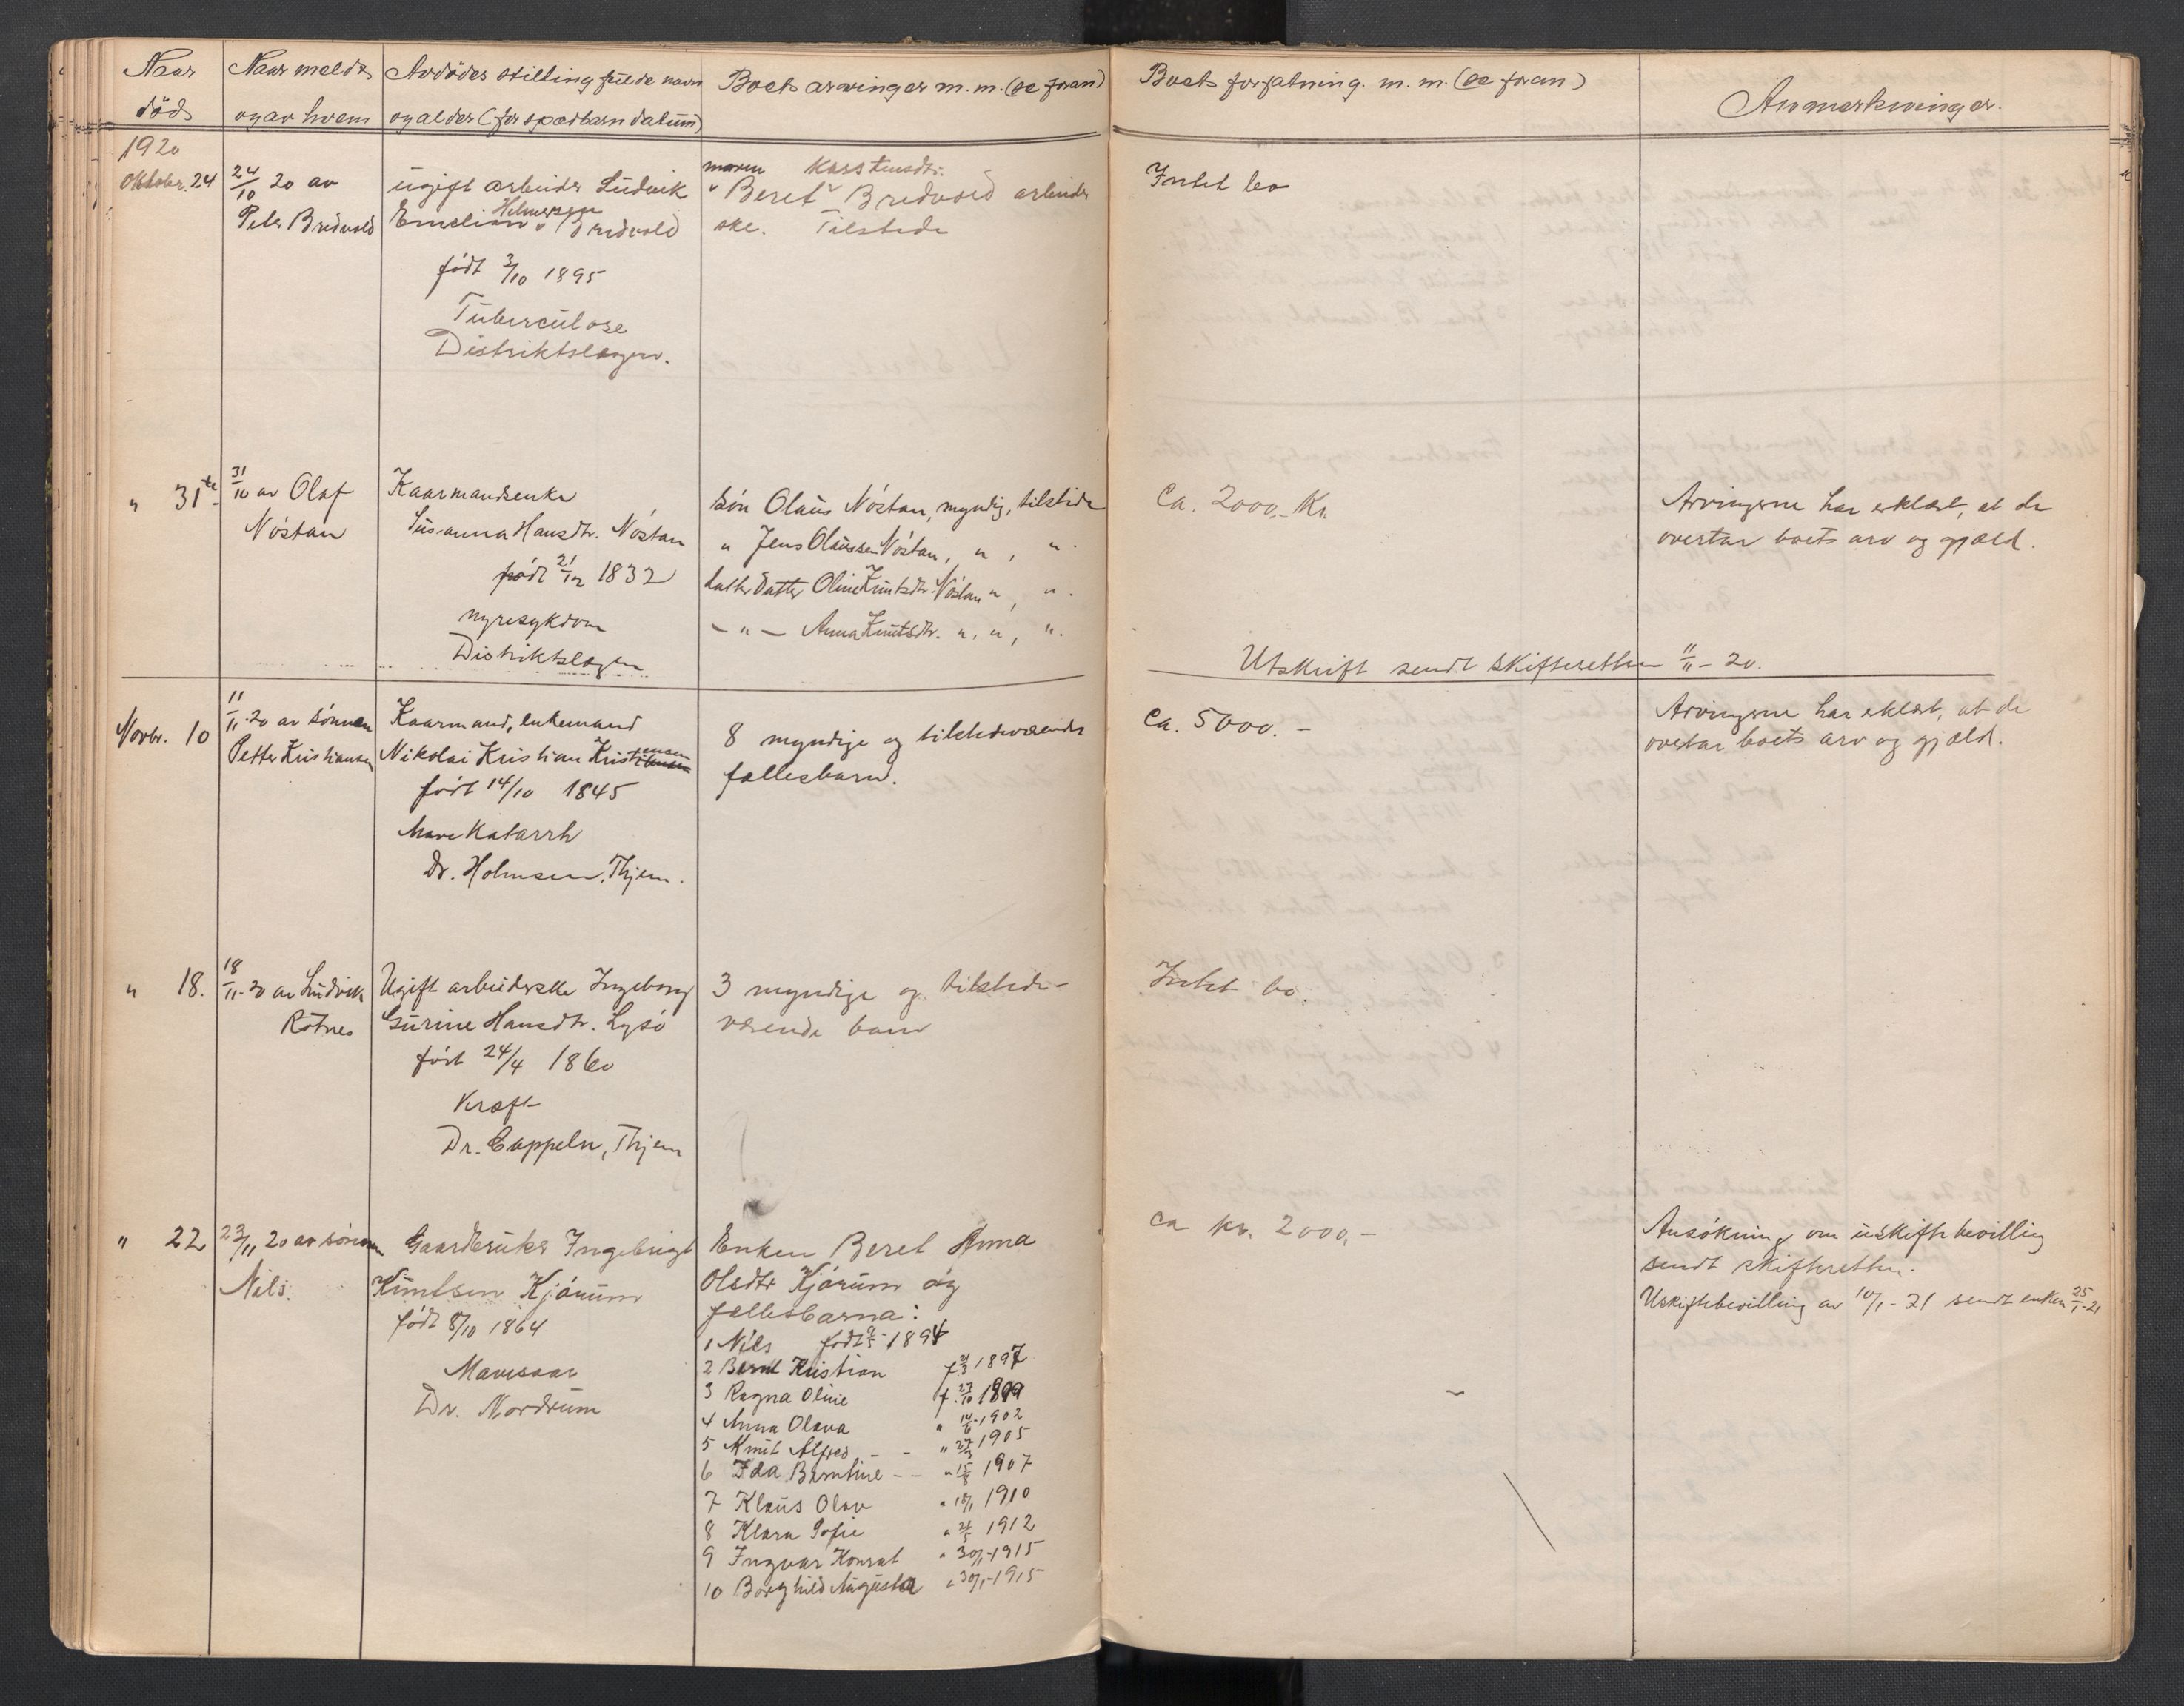 Naar
död
Naar meldt
og av hvem
Avdödes stilling fulde navn
og alder (for spædbarn datum)
Boets arvinger m.m. (se foran)
Boets forfatning. m. m. (se foran)
Anmerkninger.
1920
Oktober. 24
24/10 20 av
Peter Bredvold
ugift arbeider Ludvik
Helmersen
Emelian Bredvold
født 3/10 1895
Tuberculose
Distriktslægen.
moren Karstensdtr.
Beret Bredvold arbeider
ske. Tilstede
Intet bo
" 31te
31/10 av Olaf
Nöstan
Kaarmandsenke
Susanna Hansdtr. Nöstan
født 21/12 1832
nyresykdom
Distriktslægen
Sön Olaus Nöstan, myndig, tilstede
" Jens Olaussen Nöstan, ", "
datter Datter Oline Knutsdtr. Nöstan ", ".
- " - Anna Knutsdtr. ", ", ".
Ca. 2000,- Kr.
Arvingerne har erklært, at de
overtar boets arv og gjæld.
Utskrift sendt skifteretten 11/11 - 20.
Novbr. 10
11/11-20 av sönnen
Petter Kristiansen
Kaarmand, enkemand
Nikolai Kristian Kristensen
født 14/10 1845
Mave Katarrh
Dr. Holmsen, Thjem.
8 myndige og tilstedeværende
fællesbarn.
Ca. 5000.-
Arvingerne har erklært, at de
overtar boets arv og gjæld.
" 18.
18/11-20 av Ludvik
Rötnes
Ugift arbeiderske Ingeborg
Gurine Hansdtr. Lysö
født 24/4 1860
Kræft
Dr. Cappeln, Thjem
3 myndige og tilstede-
værende barn
Intet bo.
" 22
23/11 20 av sönnen
Nils.
Gaardbruker Ingebrigt
Knutsen Kjörum
født 8/10 1864
Mavesaar
Dr. Nordrum
Enken Beret Anna
Olsdtr Kjörum og
fællesbarna:
1 Nils født 9/5-1894
2 Bernt Kristian f 21/3 1897
3 Ragna Oline f. 27/10 1899
4 Anna Olava " 14/6-1902
5 Knut Alfred - - " 27/3 1905
6 Ida Berntine - - " 15/8 1907
7 Klaus Olav " 18/1 1910
8 Klara Sofie " 21/5 1912
9 Ingvar Konrat " 30/1-1915
10 Borghild Augusta " 30/1-1915
Ca kr. 2000,-
Ansökning om uskiftebevilling
sendt skifteretten.
Uskiftebevilling av 10/1-21 sendt enken 25/1-21